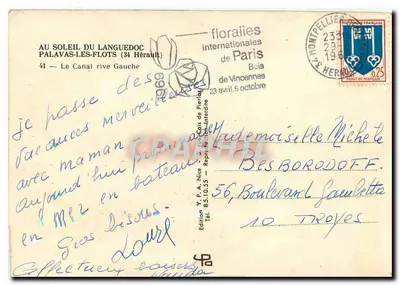 AU SOLEIL DU LANGUEDOC
PALAVAS-LES-FLOTS (34 Hérault)
41 - Le Canal rive Gauche
je passe des
vacances merveilleuses
avec maman
aujourd'hui
en mer en bateau
Gros bisous
Affectueux baisers
Edition V. P. A. Nice
Reproduction Interdite
Tél. 85.10.55
1969
floralies
internationales
de Paris
Bois
de Vincennes
23 avril, 5 octobre
34 MONTPELLIER
HERAULT
0,75
Mademoiselle Michèle
BESBORODOFF
56, Boulevard Gambetta
10 TROYES